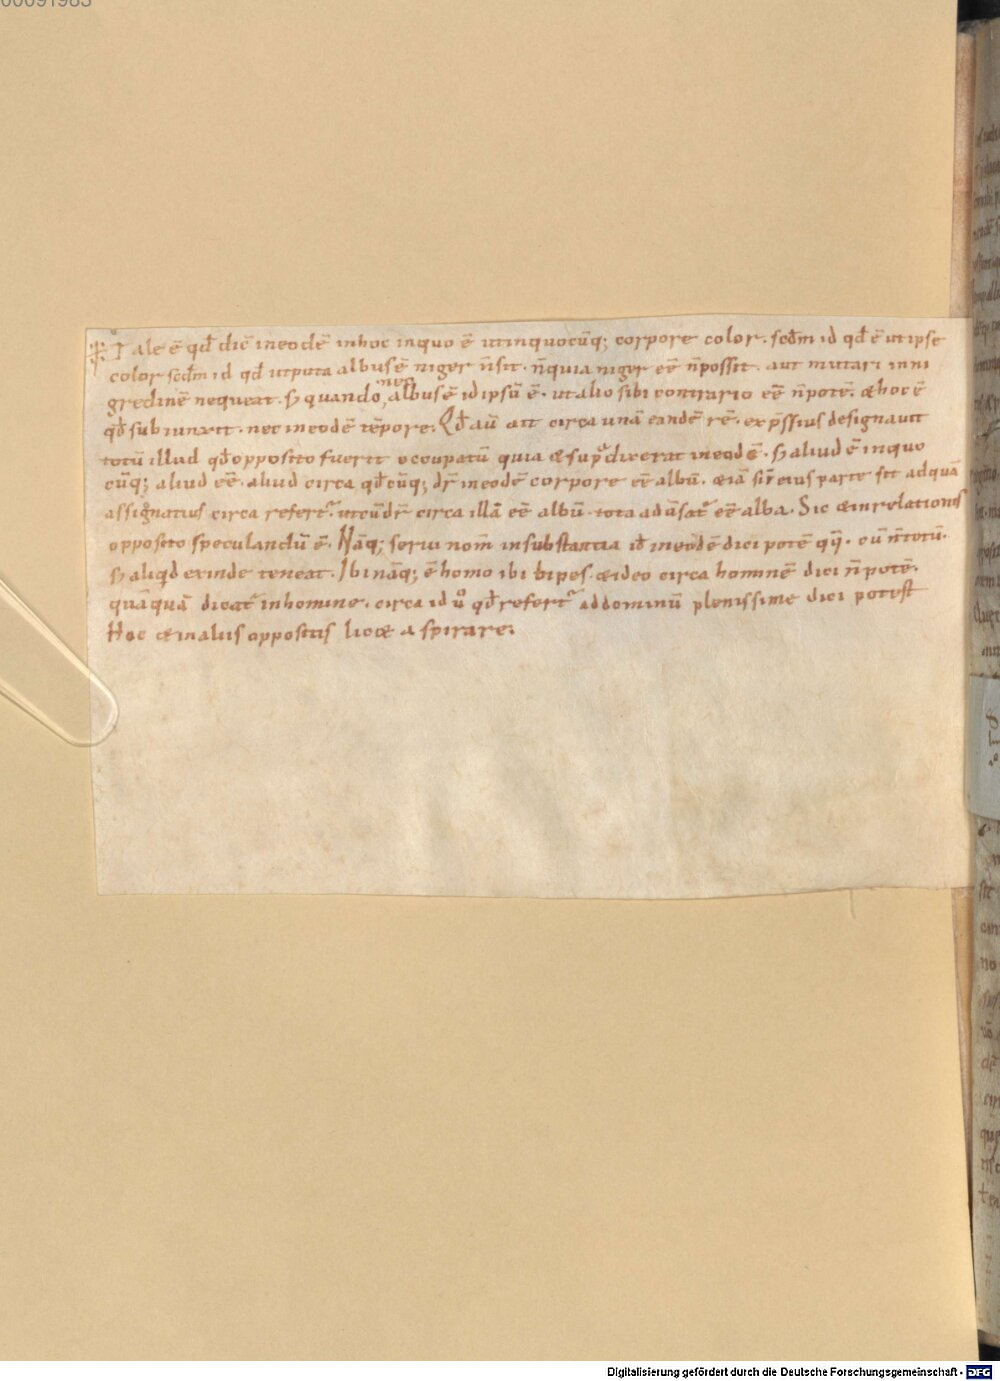 00091983
Tale ē qđ dic̄ in eodē in hoc in quo ē ut in quocūq; corpore color. scđm id qđ ē ut ipse
color scđm id qđ utputa albus ē niger n̄ sit. n̄ quia niger eē n̄ possit. aut mutari in ni
gredinē nequeat. ꝸ quando albus ē id ipsū ē. ut alio sibi contrario eē n̄ potē. & hoc ē
qđ subiunxit. nec in eodē tēpore. Qđ aū ait circa unā eandē rē. exp̄ssius designauit
totū illud qđ opposito fuerit occupatū quia & sup dixerat in eodē. ꝸ aliud ē in quo
cūq; aliud eē. aliud circa qđcūq; dr̄ in eodē corpore eē albū. &iā si eius parte sit ad quā
assignatus circa refert̄. utcū dr̄ circa illā eē albū tota aduersat̄ eē alba. Sic & in relationis
opposito speculandū ē. Nāq; serui nom̄ in substantia id in eodē dici potē qͥ. cū n̄ totū.
ꝸ aliqđ exinde teneat. Ibi nāq; ē homo ibi bipes. & ideo circa hominē dici n̄ potē.
quāquā dicat̄ in homine. circa id u̇ qđ refert̄ ad dominū plenissime dici potest
Hoc & in aliis oppositis lic& aspirare.
Digitalisierung gefördert durch die Deutsche Forschungsgemeinschaft - DFG